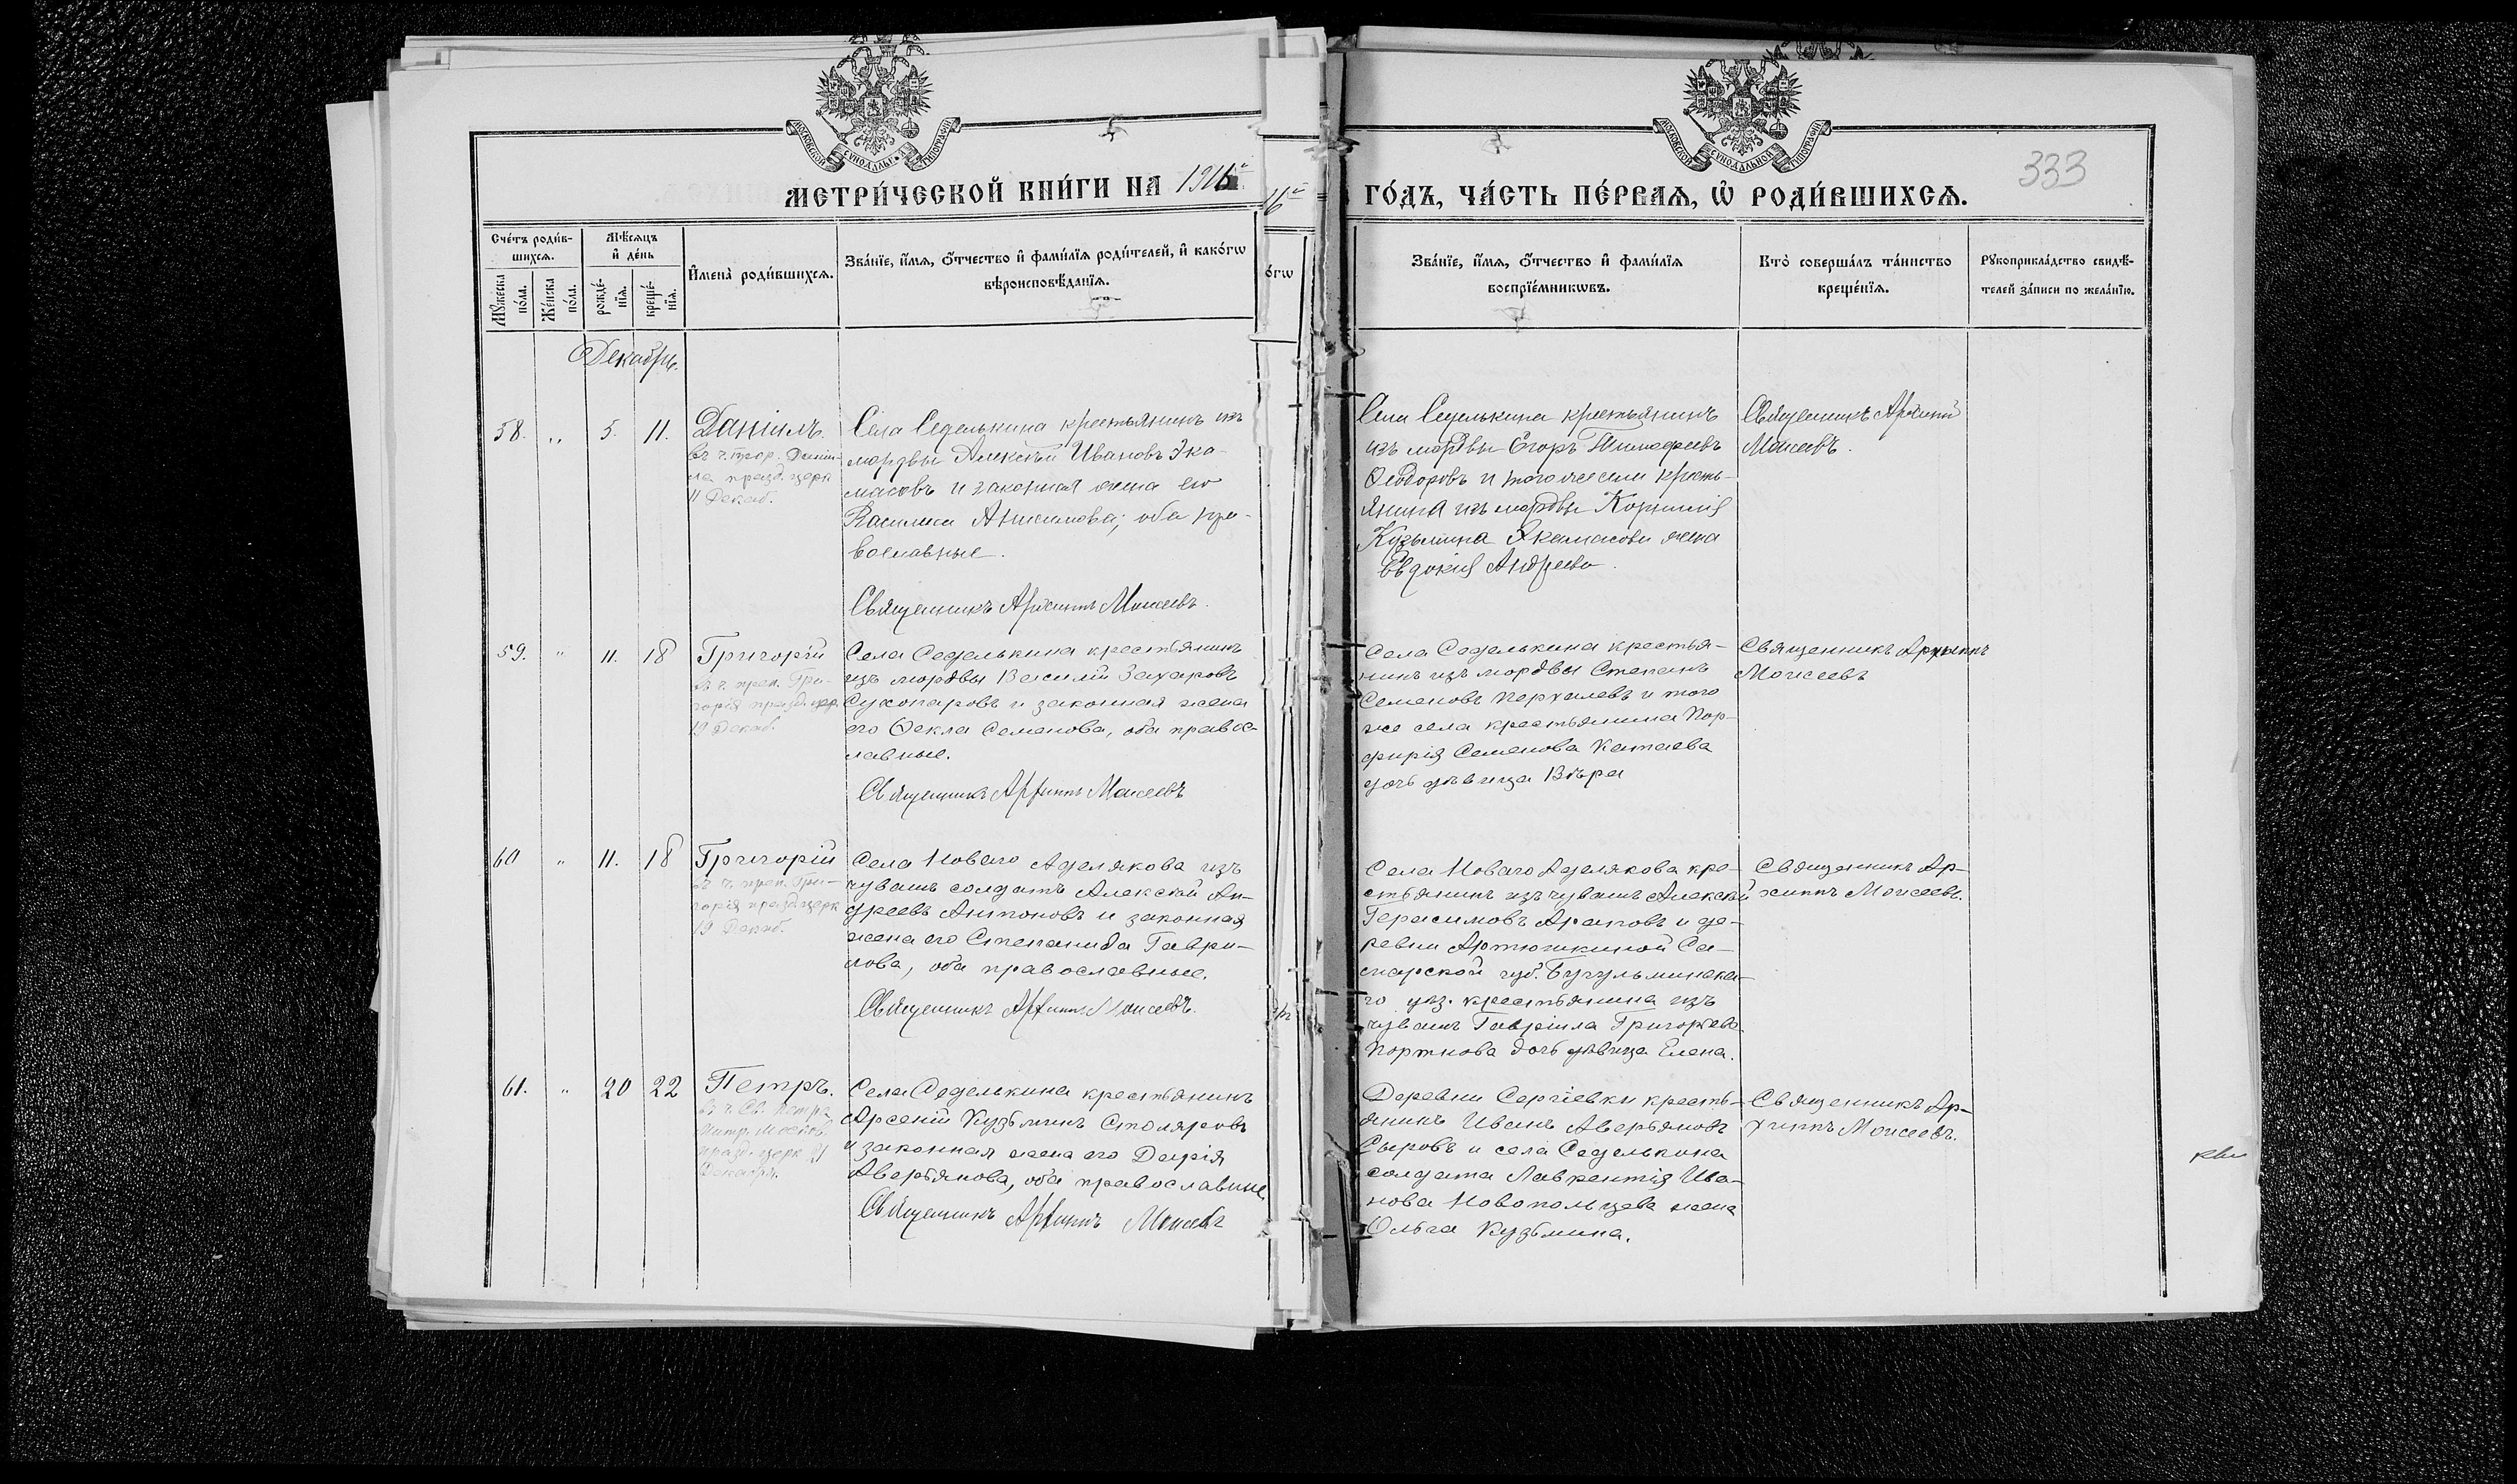 МЕТРИ́ЧЕСКОЙ КНИ́ГИ НА 1916й
Сче́тъ роди́в-
шихсѧ.
Мꙋ́жеска
по́ла.
Же́нска
по́ла.
Мѣ́сѧцъ
и҆ де́нь
рожде́-
нїѧ.
креще́-
нїѧ.
И҆мена̀ роди́вшихсѧ.
Зва́нїе, и҆́мѧ, ѻ҆́тчество и҆ фами́лїѧ роди́телей, и҆ како́гѡ
вѣроисповѣ́данїѧ.
Декабрь.
58. „ 5. 11. Даніилъ.
въ ч. прор. Дании-
ла празд. церк
11 Декаб.
Села Седелькина крестьянинъ изъ
мордвы Алексѣй Ивановъ Эка-
масовъ и законная жена его
Василиса Анисимова; оба пра-
вославные.
Священникъ Архиппъ Моисеевъ.
59. „ 11. 18 Григорій
въ ч. преп. Гри-
горія празд. цер.
19 Декаб.
Села Седелькина крестьянинъ
изъ мордвы Василій Захаровъ
Сухопаровъ и законная жена
его Ѳекла Семенова, оба правос-
лавные.
Священникъ Архиппъ Моисеевъ
60 „ 11. 18 Григорій
въ ч. преп. Гри-
горія празд церк
19 Декаб.
Села Новаго Аделякова изъ
чувашъ солдатъ Алексѣй Ан-
дреевъ Антоновъ и законная
жена его Степанида Гаври-
лова, оба православные.
Священникъ Архиппъ Моисеевъ.
61. „ 20 22 Петръ.
въ ч. Св. Петра
Митр. Москов.
празд. церк 21
Декабря.
Села Седелькина крестьянинъ
Арсеній Кузьминъ Столяровъ
и законная жена его Дарія
Аверьянова, оба православные
Священникъ Архиппъ Моисеевъ
16й
о́гѡ
333
ГО́ДЪ, ЧА́СТЬ ПЕ́РВАѦ, Ѡ҆ РОДИ́ВШИХСѦ.
Зва́нїе, и҆́мѧ, ѻ҆́тчество и҆ фами́лїѧ
воспрїе́мникѡвъ.
Кто̀ соверша́лъ та́инство
креще́нїѧ.
Рꙋкоприкла́дство свидѣ́-
телей за́писи по жела́нїю.
Села Седелькина крестьянинъ
изъ мордвы Егоръ Тимофеевъ
Ѳеодоровъ и того же села кресть-
янина изъ мордвы Корнилія
Кузьмина Экамасова жена
Евдокія Андреева.
Священникъ Архиппъ
Моисеевъ.
Села Седелькина крестья-
нинъ изъ мордвы Степанъ
Семеновъ Пархалевъ и того
же села крестьянина Пор-
фирія Семенова Катаева
дочь дѣвица Вѣра
Священникъ Архиппъ
Моисеевъ
Села Новаго Аделякова кре-
стьянинъ изъ чувашъ Алексѣй
Герасимовъ Араповъ и де-
ревни Артюшкиной Са-
марской губ. Бугульминска-
го уѣз. крестьянина изъ
чувашъ Гавріила Григорьева
Портнова дочь дѣвица Елена.
Священникъ Ар-
хиппъ Моисеевъ.
Деревни Сергіевки кресть-
янинъ Иванъ Аверьяновъ
Сыровъ и села Седелькина
солдата Лаврентія Ива-
нова Новопольцева жена
Ольга Кузьмина.
Священникъ Ар-
хиппъ Моисеевъ.